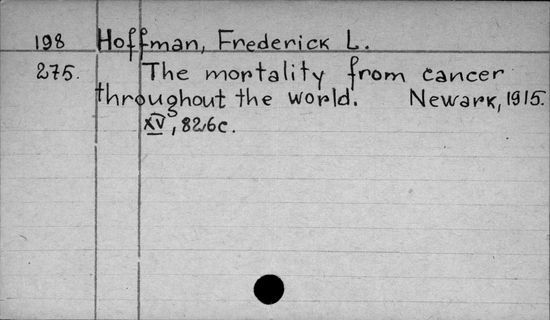 198 Hoffman, Frederick L.
275. The mortality from cancer
throughout the world. Newark, 1915.
XV, 826c.